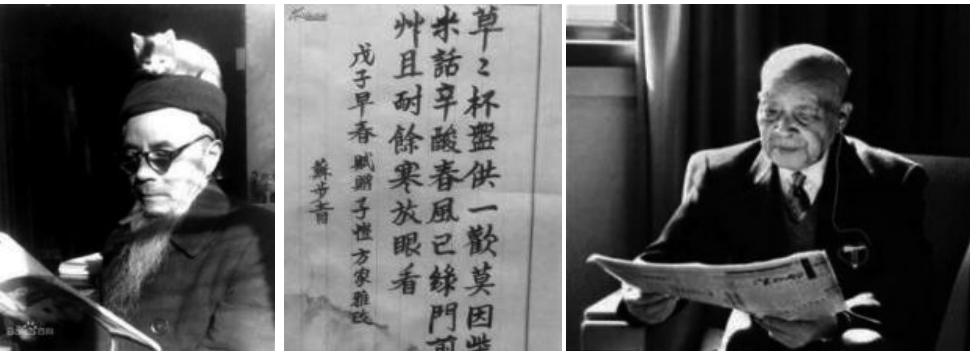 草〻杯盤供一歡莫因柴
米話辛酸春風已綠門前
艸且耐餘寒放眼看
戊子早春賦贈子愷方家雅政
蘇步青